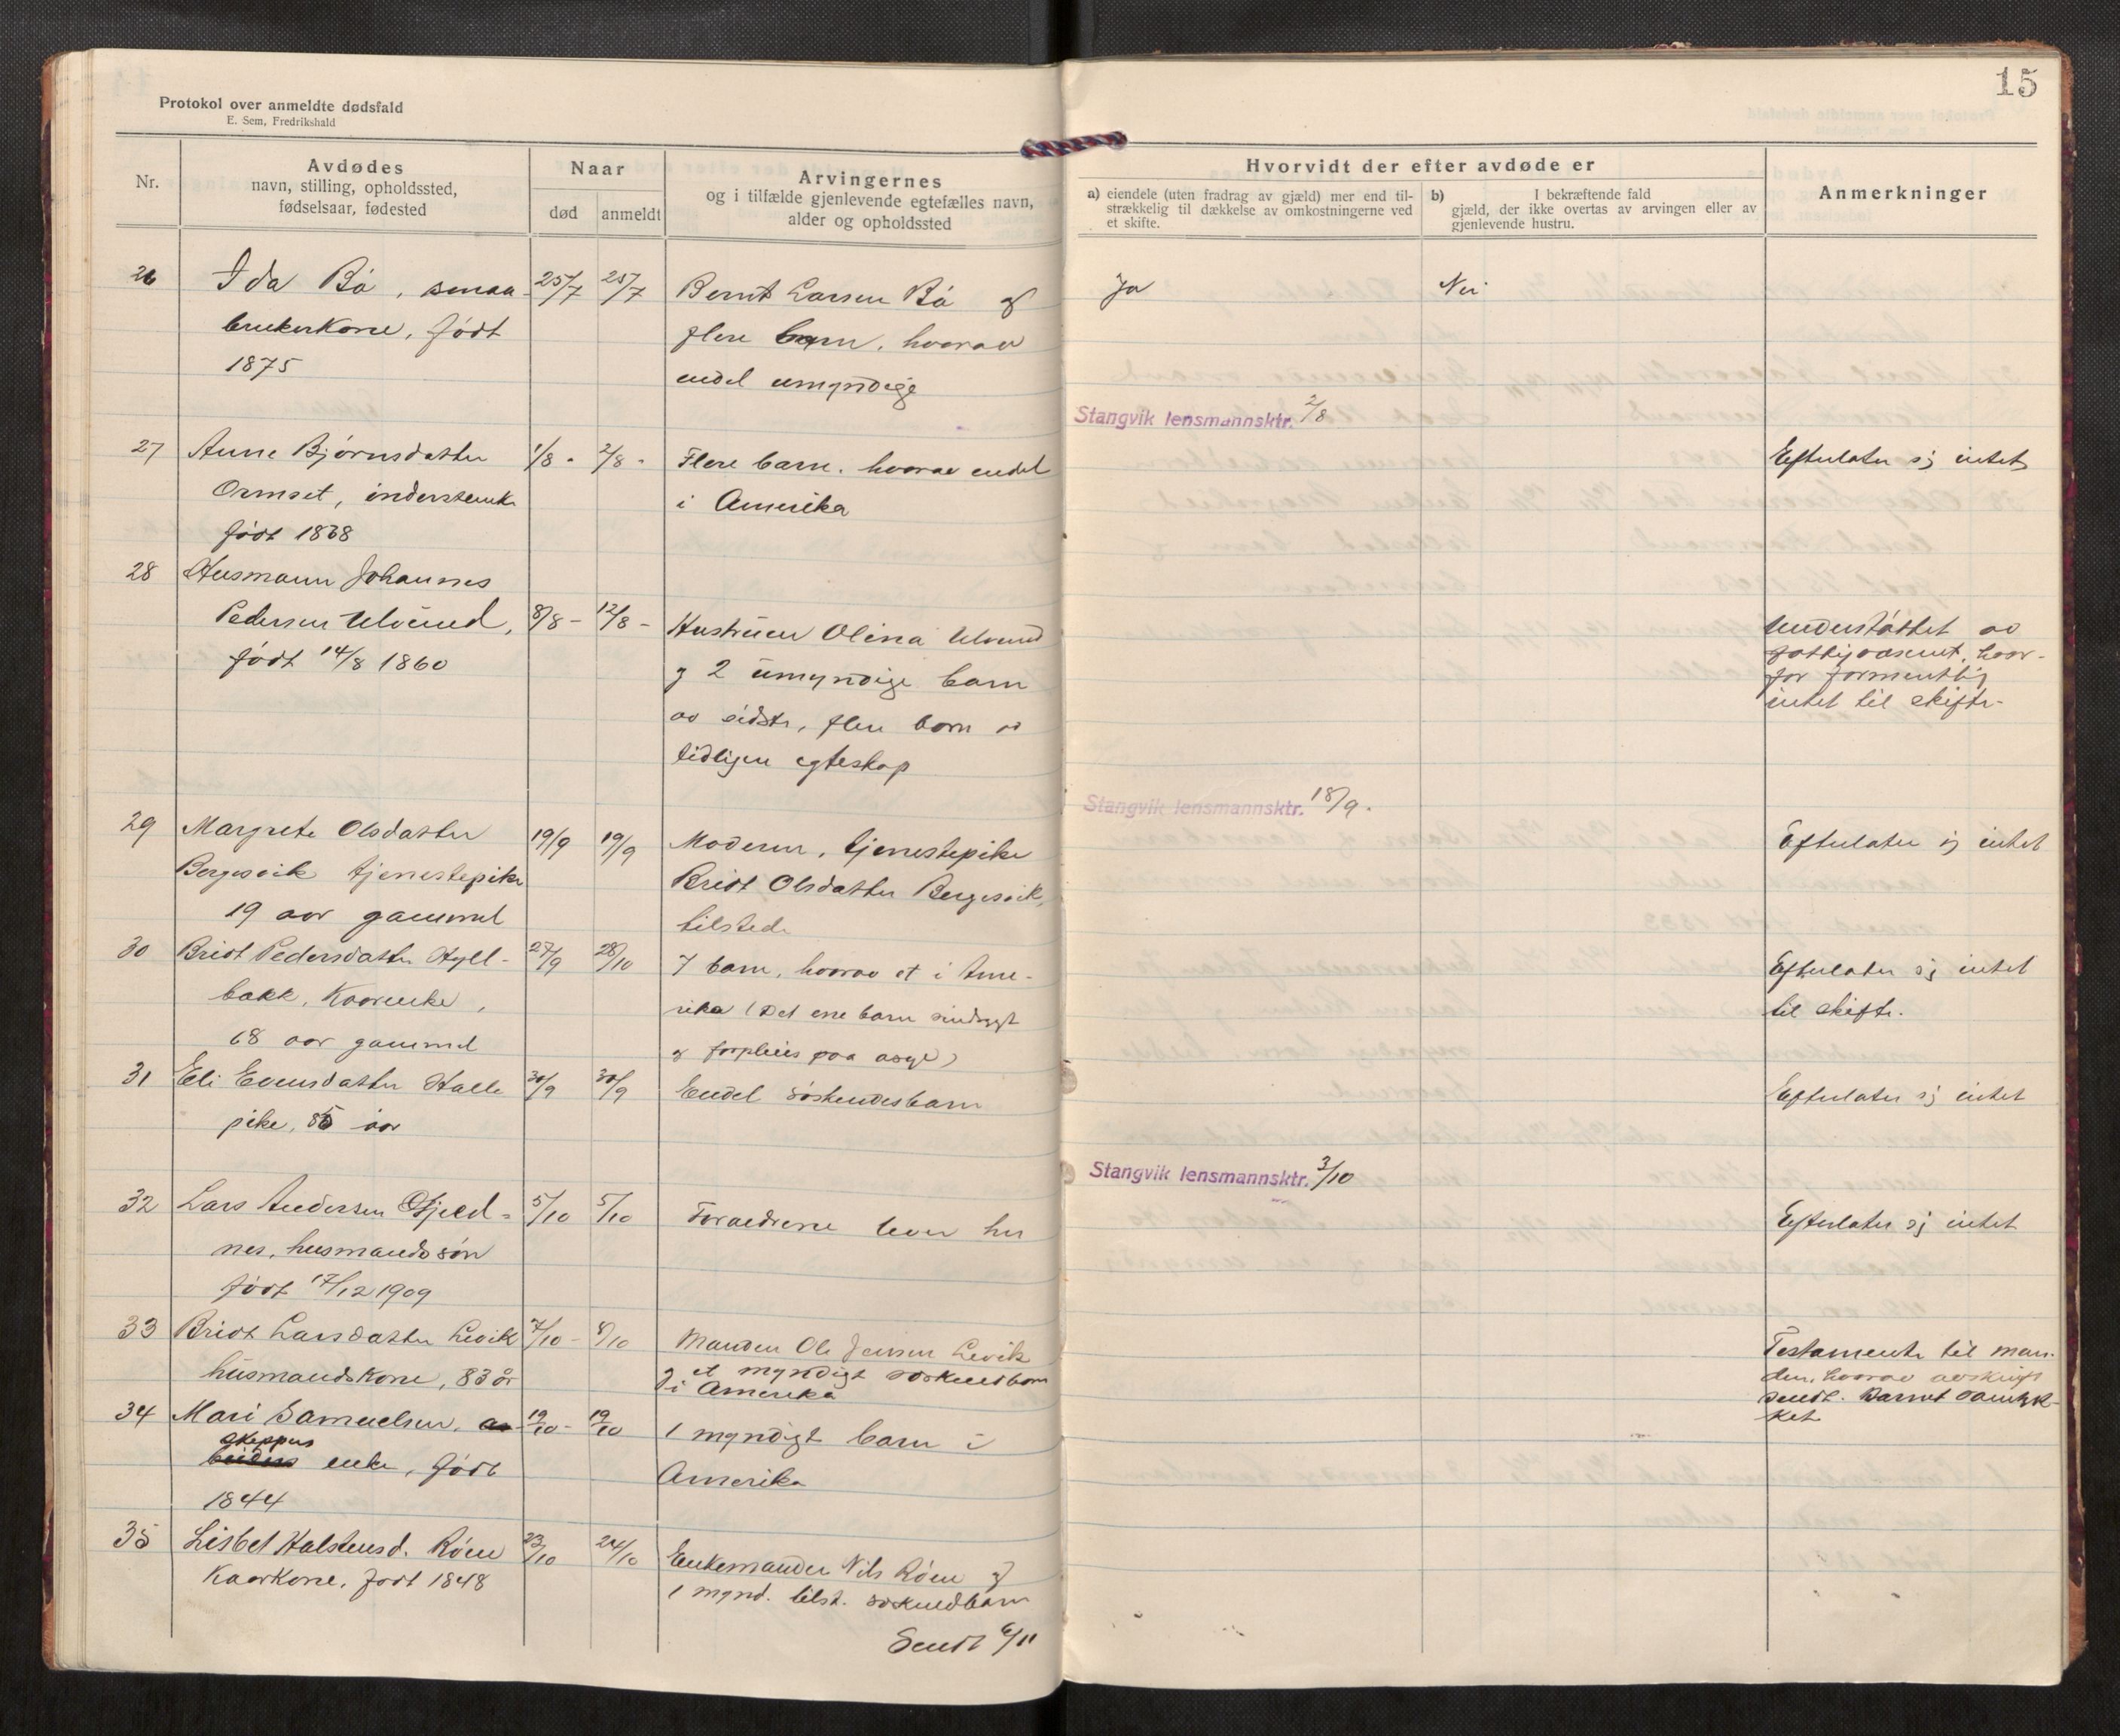 15
Protokol over anmeldte dødsfald
E. Sem, Fredrikshald
Nr.
Avdødes
navn, stilling, opholdssted,
fødselsaar, fødested
Naar
død
anmeldt
Arvingernes
og i tilfælde gjenlevende egtefælles navn,
alder og opholdssted
Hvorvidt der efter avdøde er
a) eiendele (uten fradrag av gjæld) mer end til-
strækkelig til dækkelse av omkostningerne ved
et skifte.
b) I bekræftende fald
gjæld, der ikke overtas av arvingen eller av
gjenlevende hustru.
Anmerkninger
26 Ida Bø, smaa- 25/7 25/7 Bernt Larsen Bø og Ja Nei
brukerkone, født flere barn, hvorav
1875 endel umyndige
Stangvik lensmannsktr. 2/8
27 Anne Bjørnsdatter 1/8 - 2/8 - Flere barn, hvorav endel Efterlater sig intet
Ormset, inderstenke i Amerika
født 1838
28 Husmann Johannes
Pedersen Ulvund, 8/8 - 12/8 - Hustruen Olina Ulvund Understøttet av
født 14/8 1860 og 2 umyndige barn fattigvæsenet, hvor-
for formentlig
av sidste, flere barn av intet til skifte-
tidligere egteskap
Stangvik lensmannsktr. 18/9.
29 Margrete Olsdatter 19/9 19/9 Moderen, tjenestepike Efterlater sig intet
Bergsvik tjenestepike Bridt Olsdatter Bergsvik,
19 aar gammel tilstede
30 Bridt Pedersdatter Hyll- 27/9 28/10 7 barn, hvorav et i Ame- Efterlater sig intet
bakk, Kaarenke, rika (Det ene barn sindssygt til skifte.
68 aar gammel og forpleies paa asyl)
31 Eli Evensdatter Halle 30/9 30/9 Endel søskendesbarn Efterlater sig intet
pike, 85 aar
Stangvik lensmannsktr. 3/10
32 Lars Andersen Gjeld- 5/10 5/10 Foraeldrene lever her Efterlater sig intet
nes, husmandssøn
født 17/12 1909
33 Bridt Larsdatter Levik 7/10 - 8/10 Manden Ole Jensen Levik Testamente til man-
husmandskone, 83 år og et myndigt særkuldbarn den, hvorav avskrift
i Amerika sendt. Barnet samtyk-
ket
34 Mari Samuelsen, 19/10 - 19/10 1 myndigt barn i
skeppus
enke, født Amerika
1844
35 Lisbet Halstensd. Røen 23/10 24/10 Enkemanden Nils Røen og
Kaarkone, født 1848 1 mynd. tilst. særkuldbarn
Sendt 6/11